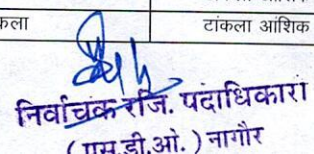 कला टांकला आंशिक
निर्वाचक रजि. पदाधिकारी
( एस.डी.ओ. ) नागौर